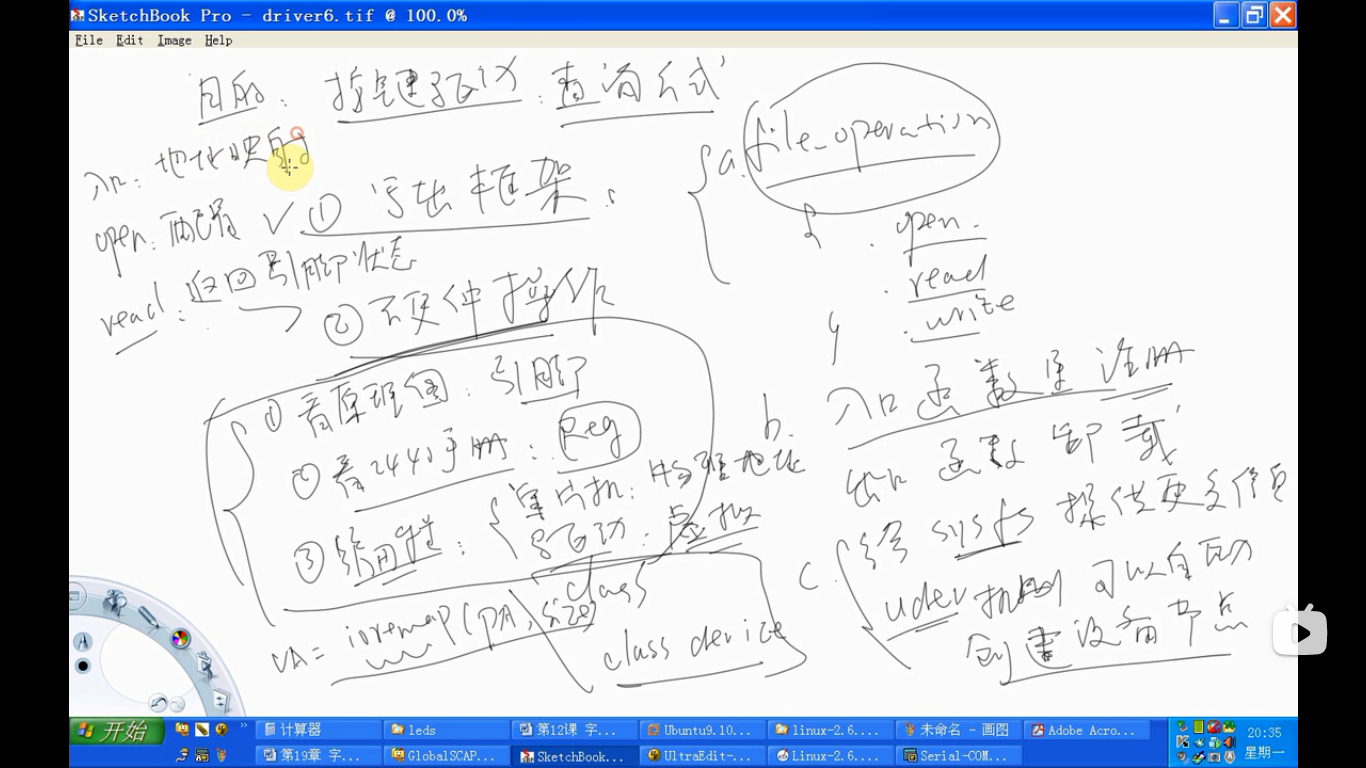 SketchBook Pro - driver6.tif @ 100.0%
File Edit Image Help
目的: 按键驱动: 查询方式
入口: 地址映射
open: 配置
read: 返回引脚状态
✓ ① 写出框架:
② 硬件操作
① 看原理图: 引脚
② 看2440手册: Reg
③ 编程: { 单片机: 物理地址
驱动: 虚拟
VA = ioremap(PA, size)
a. file_operation
{ . open.
. read
. write
}
b. 入口函数 注册
出口函数 卸载
c. { 给sysfs提供更多信息
udev机制 可以自动
创建设备节点
class
class device
开始
计算器
leds
第12课 字...
Ubuntu9.10...
linux-2.6....
未命名 - 画图
Adobe Acro...
20:35
第19章 字...
GlobalSCAP...
SketchBook...
UltraEdit-...
Linux-2.6....
Serial-COM...
星期一